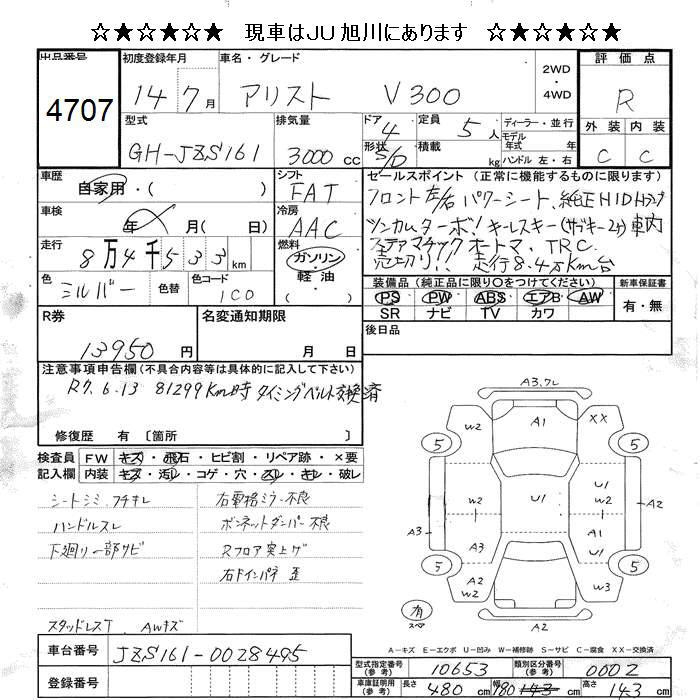 ☆★☆★☆★☆ 現車はJU旭川にあります ☆★☆★☆★☆
出品番号 4707
初度登録年月 14 7月
車名・グレード アリスト V300
2WD ・ 4WD
評価点 R
外装 内装
C C
型式 GH-JZS161
排気量 3000cc
ドア 4 形状 S/D
定員 5人 積載 kg
ディーラー・並行
モデル年式 年
ハンドル 左・右
車歴 自家用・( )
シフト FAT
車検 年 月( 日)
冷房 AAC
走行 8万4千533km
燃料 ガソリン・軽油
色 シルバー 色替 色コード 1C0
セールスポイント (正常に機能するものに限ります)
フロント左/右 パワーシート、純正HIDランプ
ツンカムターボ! キーレスキー(サブキー2ケ)車内
ステアマチック オートマ、TRC
売切り!! 走行8.4万km台
装備品(純正品に限り○をつけてください)
PS PW ABS エアB AW
SR ナビ TV カワ
新車保証書 有・無
後日品
R券 13950円
名変通知期限 月 日
注意事項申告欄(不具合内容等は具体的に記入して下さい)
R7.6.13 81299km時 タイミングベルト交換済
修復歴 有〔箇所 〕
検査員記入欄
FW キズ・飛石・ヒビ割・リペア跡・×要
内装 キズ・汚レ・コゲ・穴・スレ・キレ・破レ
シートシミ、フチキレ
ハンドルスレ
下廻り一部サビ
スタッドレスT、AWキズ
右電格ミラー不良
ボンネットダンパー不良
Rフロア突上ゲ
右Fインパネ 歪
A3,ワレ
W2 A1 XX
5 5
W2 U1 U1
A3 W2 A1 U1 A2
A3
5 5
A2 W2 W3
有 スペア
A2
A-キズ E-エクボ U-凹み W-補修跡 S-サビ C-腐食 XX-交換済
車台番号 JZS161-0028495
登録番号
型式指定番号(参考) 10653
類別区分番号(参考) 0002
車庫証明用(参考) 長さ 480cm 幅 180cm 高さ 143cm